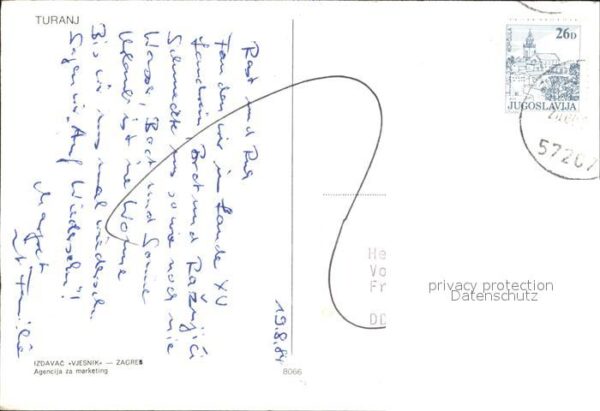 TURANJ
Rast und Ruh
Fanden wir im Lande XU
Landwein, Brot und Ražnjići
Schmeckte uns so wie noch nie
Wasser, Boot und Sonne
Urlaub ist ne Wonne
Bis wir uns mal wiedersehn
Sagen wir "Auf Wiedersehn"!
Margret
u. Familie
19.8.84
IZDAVAČ «VJESNIK» — ZAGREB
Agencija za marketing
8066
26D
JUGOSLAVIJA
57207
He
Vo
Fr
DD
privacy protection
Datenschutz